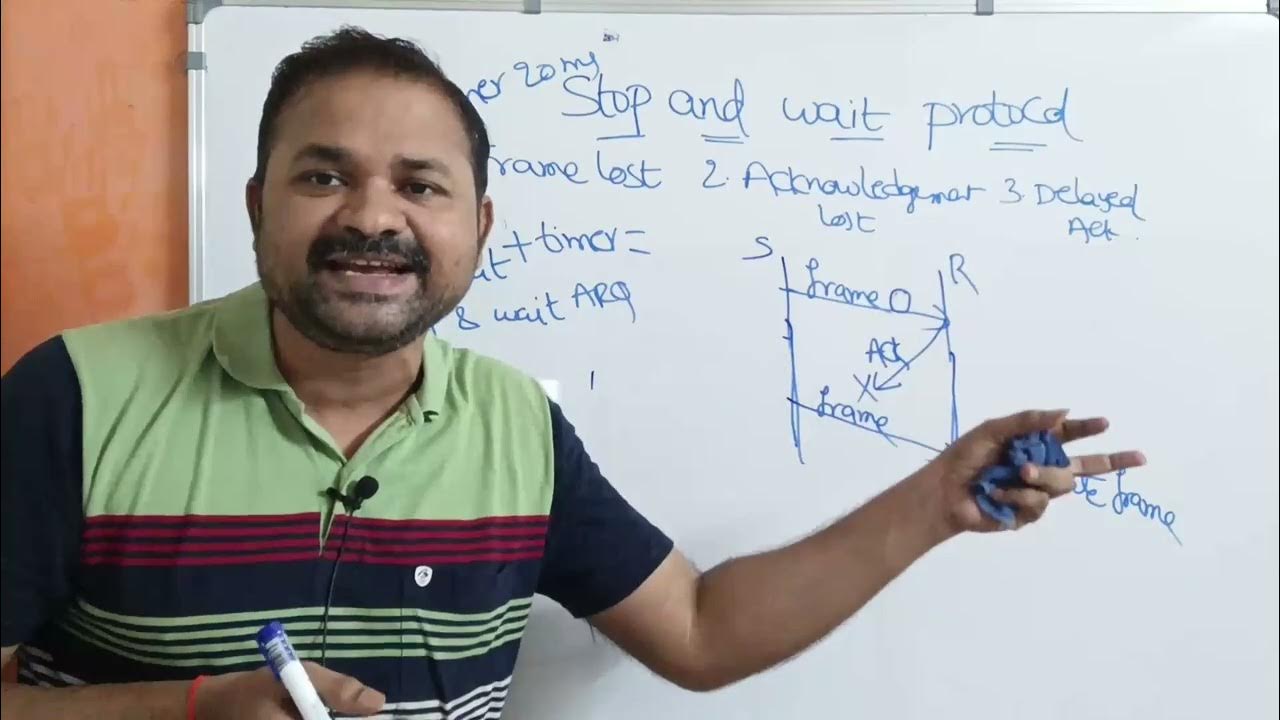 20ms
Stop and wait protocol
frame lost 2. Acknowledgemer 3. Delayed
lost Ack.
+ timer =
& wait ARQ
S R
frame 0
Ack
X
frame
frame